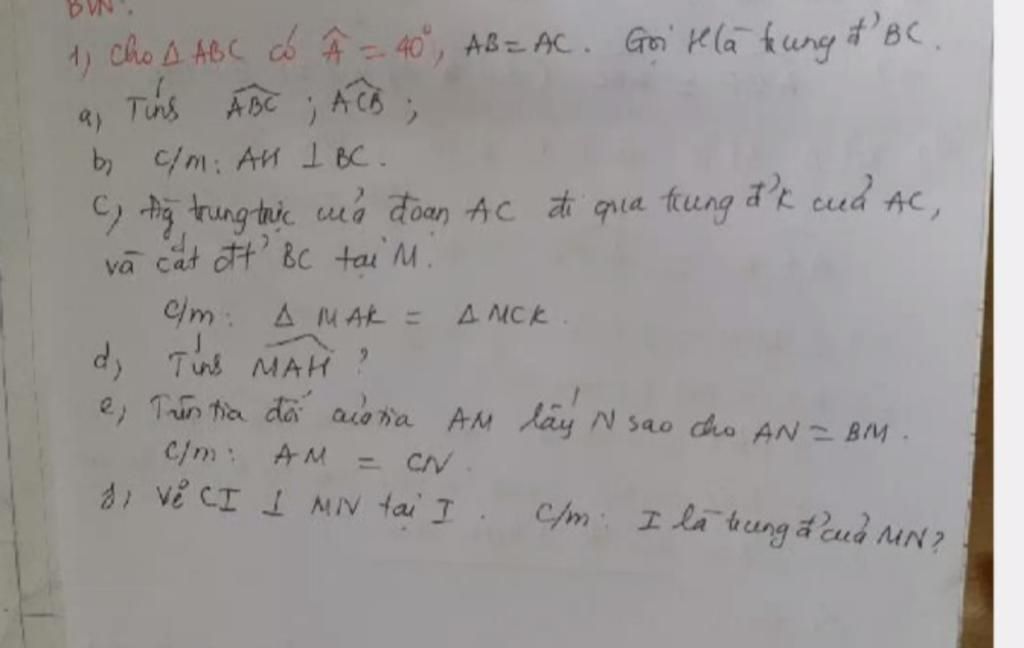 BVN:
1, Cho Δ ABC có Â = 40°, AB = AC. Gọi H là trung đ' BC.
a, Tính ABC ; ACB ;
b, C/m: AH ⊥ BC.
c, Đg trung trực của đoạn AC đi qua trung đ' K của AC,
và cắt đt' BC tại M.
C/m: Δ MAK = Δ MCK.
d, Tính MAH ?
e, Trên tia đối của tia AM lấy N sao cho AN = BM.
C/m: AM = CN.
Vẽ CI ⊥ MN tại I. C/m: I là trung đ' của MN?